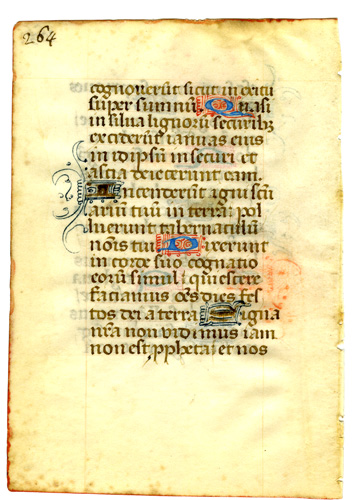 264
cognoverūt sicut in exitu
super summū. Quasi
in silva lignorū securibꝫ
exciderūt ianuas eius
in idipsū in securi et
ascia deiecerunt eam.
Incenderūt igni scū
ariū tuū in terra pol
luerunt tabernaculum
noīs tui Dixerunt
in corde suo cognatio
eorū simul quiescere
faciamus oēs dies fes
tos dei a terra Signa
nr̄a non vidimus iam
non est ꝓpheta et nos